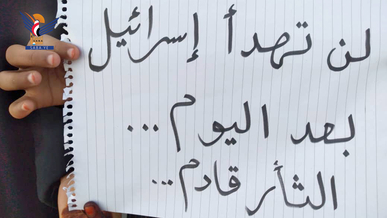 لن تهدأ إسرائيل
بعد اليوم...
الثأر قادم...
SABA.YE